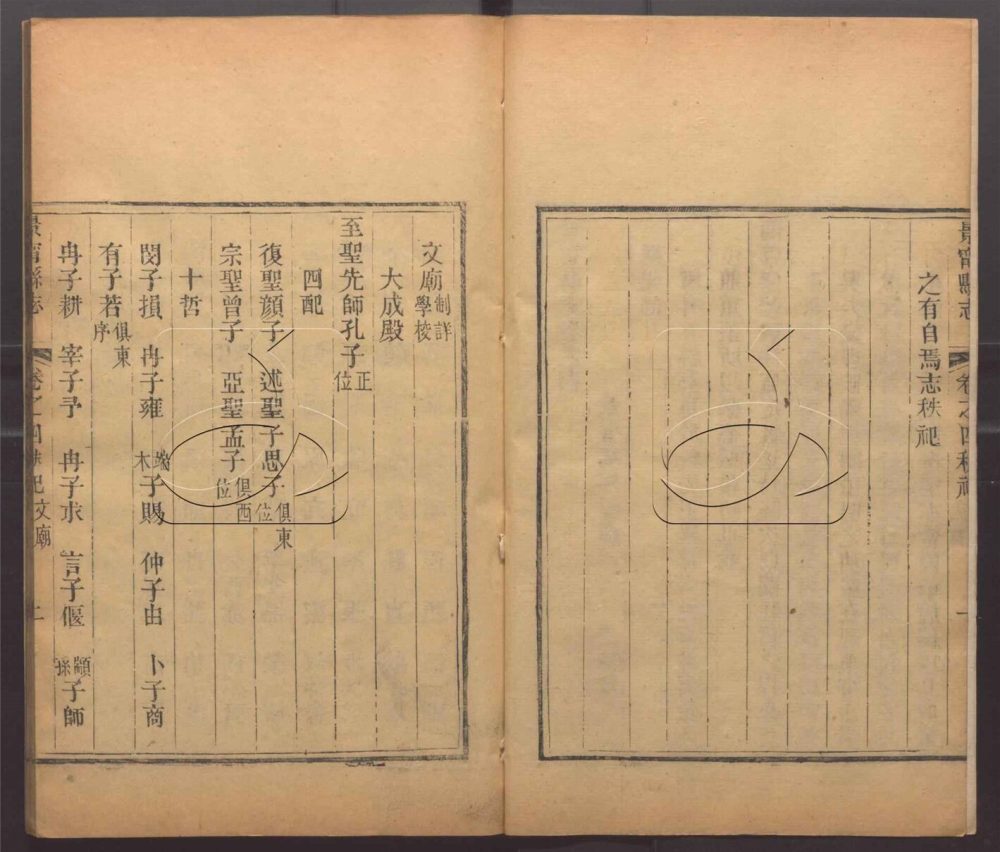 景甯縣志 卷之四秩祀 一
之有自焉志秩祀
文廟制詳學校
大成殿
至聖先師孔子正位
四配
復聖顏子 述聖子思子俱東位
宗聖曾子 亞聖孟子俱西位
十哲
閔子損 冉子雍 端木子賜 仲子由 卜子商
有子若俱東序
冉子耕 宰子予 冉子求 言子偃 顓孫子師
景甯縣志 卷之四秩祀文廟